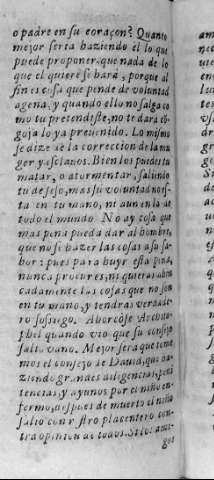 o padre en su coraçon? Quanto
mejor seria haziendo el lo que
puede proponer, que nada de lo
que el quiere se hará, porque al
fin es cosa que pende de voluntad
agena, y quando ello no salga co
mo tu pretendiste, no te dará cõ-
goja lo ya preuenido. Lo mismo
se dize de la correccion de la mu
ger y esclauos. Bien los puedes tu
matar, o atormentar, salir no
tu deseo, mas su voluntad no es-
ta en tu mano, ni aun en la de
todo el mundo. No ay cosa que
mas pena pueda dar al hombre,
que no se hazer las cosas a su sa-
bor: pues para huyr esta pena,
nunca procures, ni quieras ahin
cadamente las cosas que no son
en tu mano, y tendras verdade-
ro sossiego. Aborcose Archito-
phel quando vio que su consejo
salio vano. Mejor será que tome
mos el consejo de Dauid, que ha-
ziendo grandes diligencias, peni
tencias, y ayunos por el niño en-
fermo, despues de muerto el niño
salio con rostro placentero con-
tra opinion de todos.
gos